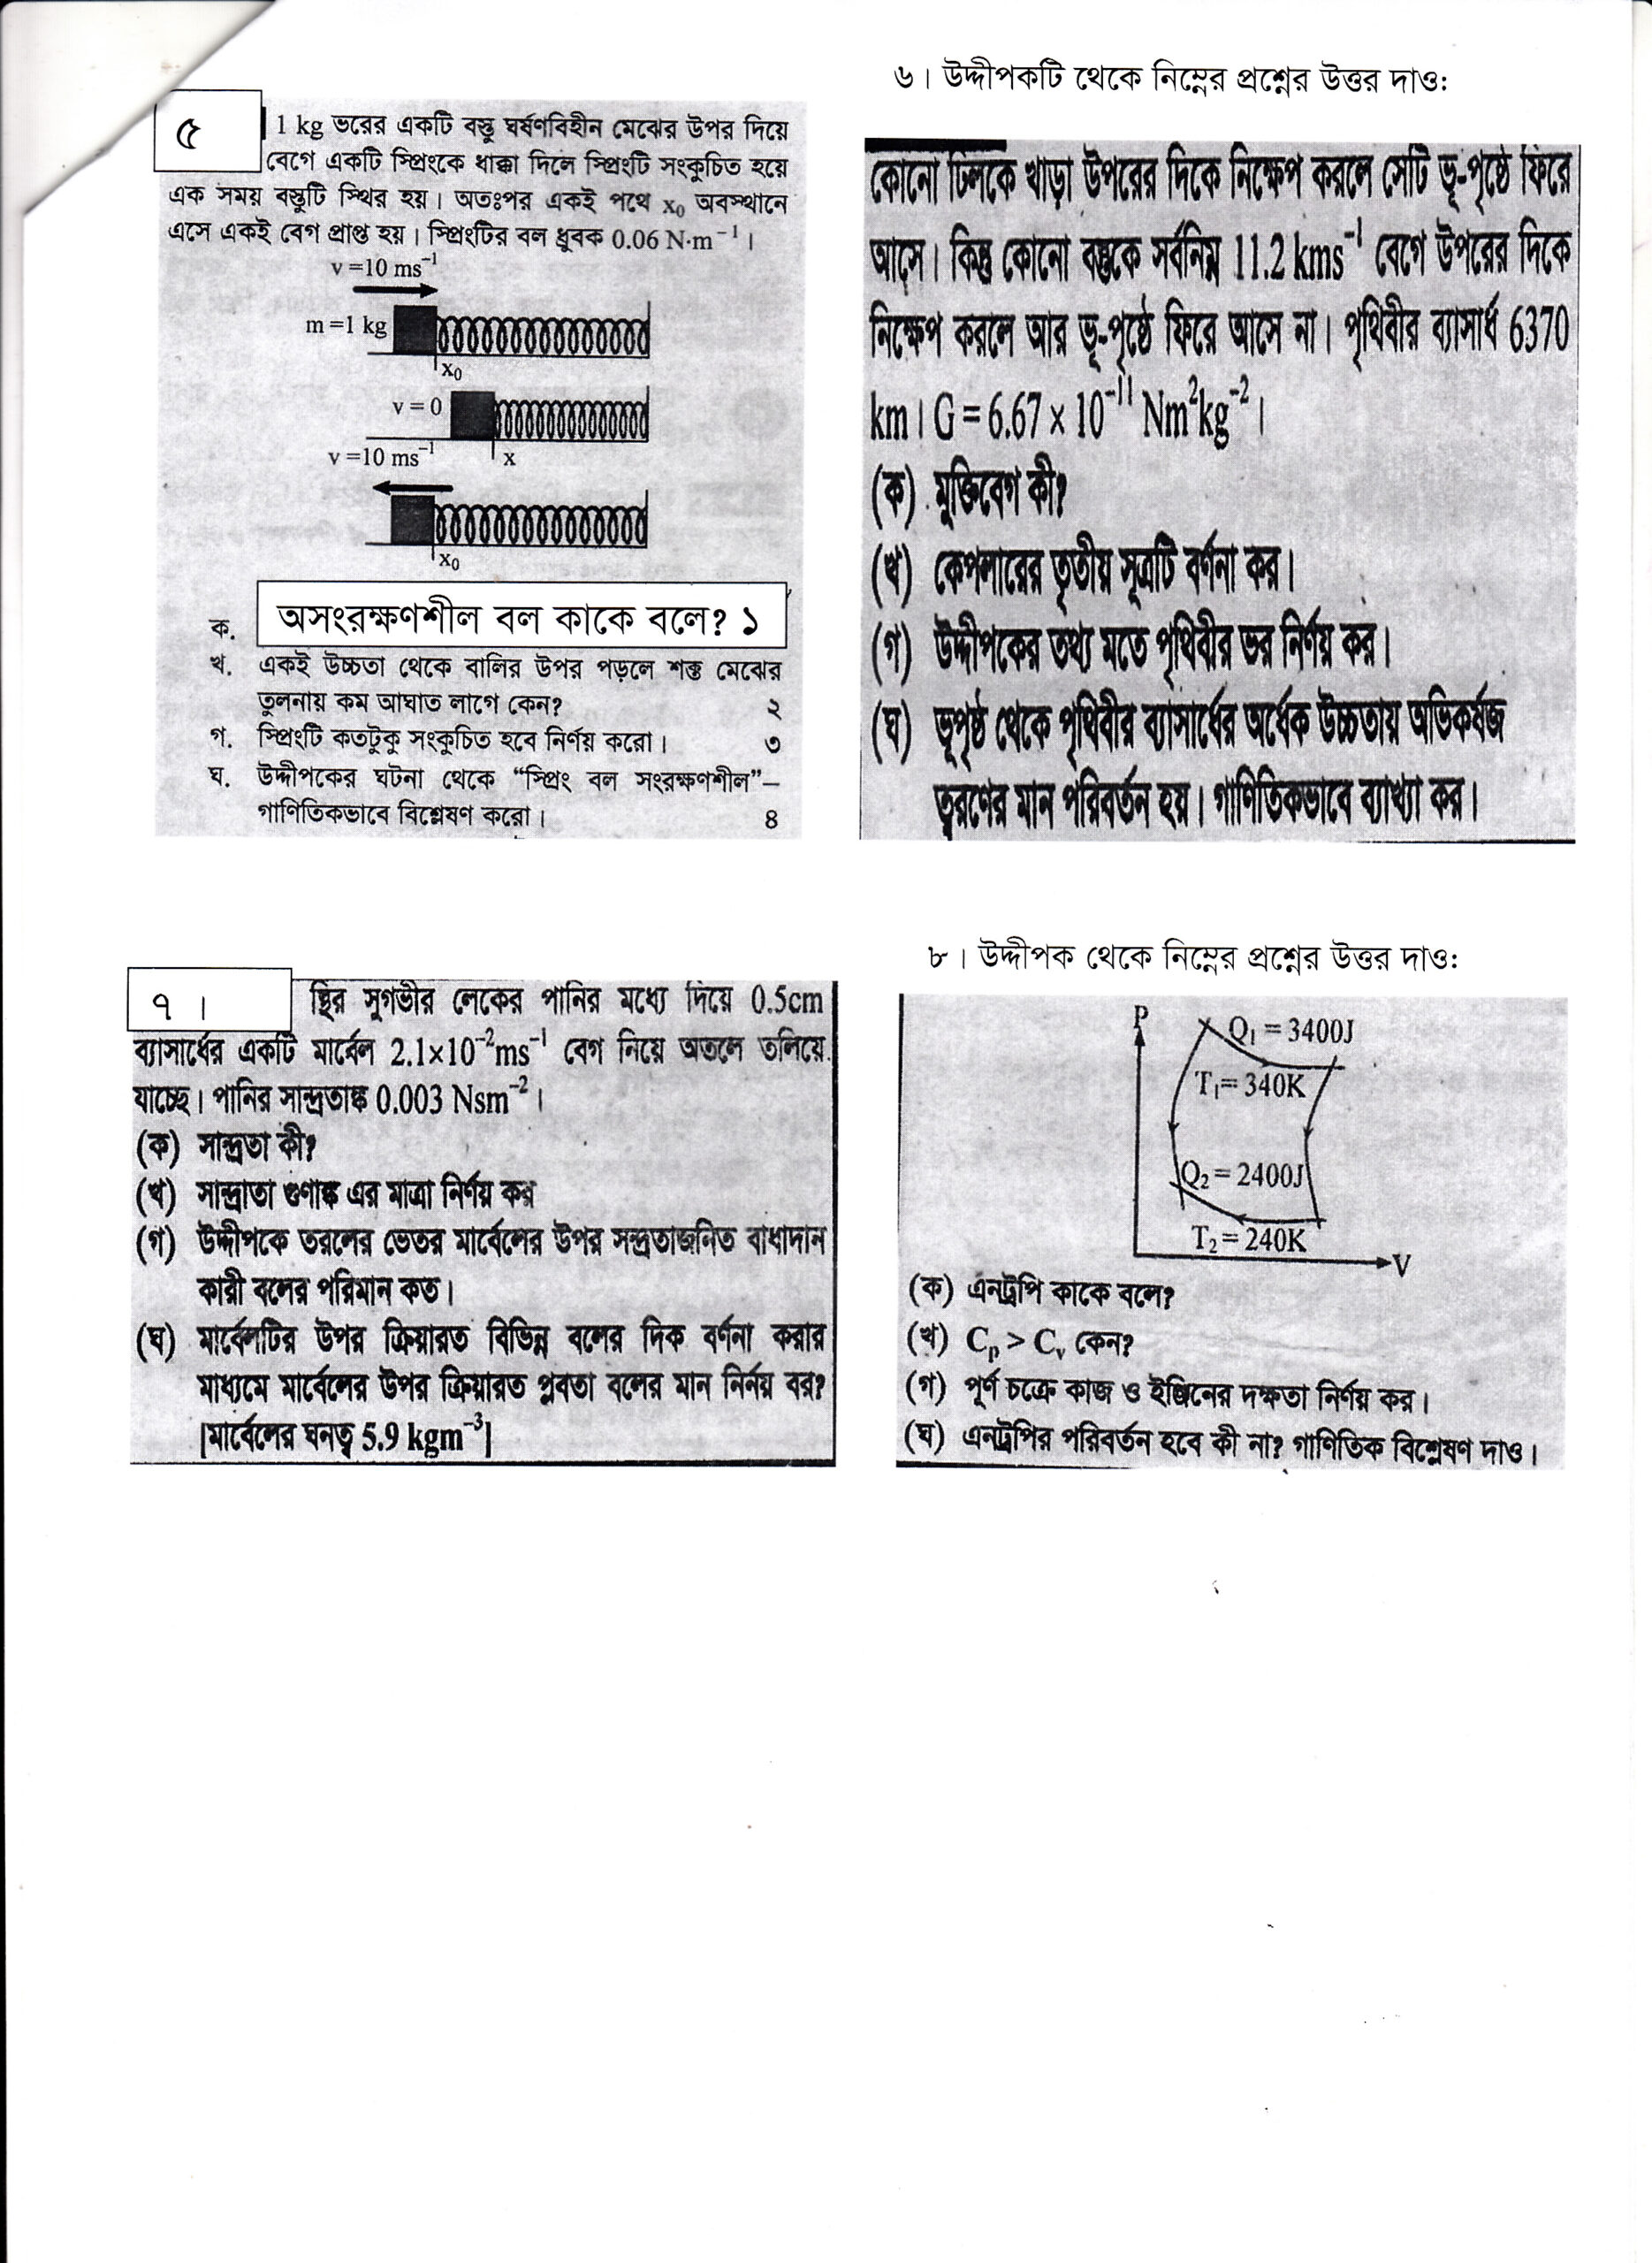 ৫
1 kg ভরের একটি বস্তু ঘর্ষণবিহীন মেঝের উপর দিয়ে
বেগে একটি স্প্রিংকে ধাক্কা দিলে স্প্রিংটি সংকুচিত হয়ে
এক সময় বস্তুটি স্থির হয়। অতঃপর একই পথে x₀ অবস্থানে
এসে একই বেগ প্রাপ্ত হয়। স্প্রিংটির বল ধ্রুবক 0.06 N·m⁻¹।
v =10 ms⁻¹
m =1 kg
x₀
v = 0
x
v =10 ms⁻¹
x₀
ক. অসংরক্ষণশীল বল কাকে বলে? ১
খ. একই উচ্চতা থেকে বালির উপর পড়লে শক্ত মেঝের
তুলনায় কম আঘাত লাগে কেন? ২
গ. স্প্রিংটি কতটুকু সংকুচিত হবে নির্ণয় করো। ৩
ঘ. উদ্দীপকের ঘটনা থেকে “স্প্রিং বল সংরক্ষণশীল”–
গাণিতিকভাবে বিশ্লেষণ করো। ৪
৬। উদ্দীপকটি থেকে নিম্নের প্রশ্নের উত্তর দাও:
কোনো ঢিলকে খাড়া উপরের দিকে নিক্ষেপ করলে সেটি ভূ-পৃষ্ঠে ফিরে
আসে। কিন্তু কোনো বস্তুকে সর্বনিম্ন 11.2 kms⁻¹ বেগে উপরের দিকে
নিক্ষেপ করলে আর ভূ-পৃষ্ঠে ফিরে আসে না। পৃথিবীর ব্যাসার্ধ 6370
km। G = 6.67 × 10⁻¹¹ Nm²kg⁻²।
(ক) মুক্তিবেগ কী?
(খ) কেপলারের তৃতীয় সূত্রটি বর্ণনা কর।
(গ) উদ্দীপকের তথ্য মতে পৃথিবীর ভর নির্ণয় কর।
(ঘ) ভূপৃষ্ঠ থেকে পৃথিবীর ব্যাসার্ধের অর্ধেক উচ্চতায় অভিকর্ষজ
ত্বরণের মান পরিবর্তন হয়। গাণিতিকভাবে ব্যাখ্যা কর।
৭ । স্থির সুগভীর লেকের পানির মধ্যে দিয়ে 0.5cm
ব্যাসার্ধের একটি মার্বেল 2.1×10⁻²ms⁻¹ বেগ নিয়ে অতলে তলিয়ে
যাচ্ছে। পানির সান্দ্রতাঙ্ক 0.003 Nsm⁻²।
(ক) সান্দ্রতা কী?
(খ) সান্দ্রাতা গুণাঙ্ক এর মাত্রা নির্ণয় কর
(গ) উদ্দীপকে তরলের ভেতর মার্বেলের উপর সন্দ্রতাজনিত বাধাদান
কারী বলের পরিমান কত।
(ঘ) মার্বেলটির উপর ক্রিয়ারত বিভিন্ন বলের দিক বর্ণনা করার
মাধ্যমে মার্বেলের উপর ক্রিয়ারত প্লবতা বলের মান নির্নয় বর?
[মার্বেলের ঘনত্ব 5.9 kgm⁻³]
৮। উদ্দীপক থেকে নিম্নের প্রশ্নের উত্তর দাও:
P
Q₁ = 3400J
T₁= 340K
Q₂ = 2400J
T₂ = 240K
V
(ক) এনট্রপি কাকে বলে?
(খ) Cₚ > Cᵥ কেন?
(গ) পূর্ণ চক্রে কাজ ও ইঞ্জিনের দক্ষতা নির্ণয় কর।
(ঘ) এনট্রপির পরিবর্তন হবে কী না? গাণিতিক বিশ্লেষণ দাও।